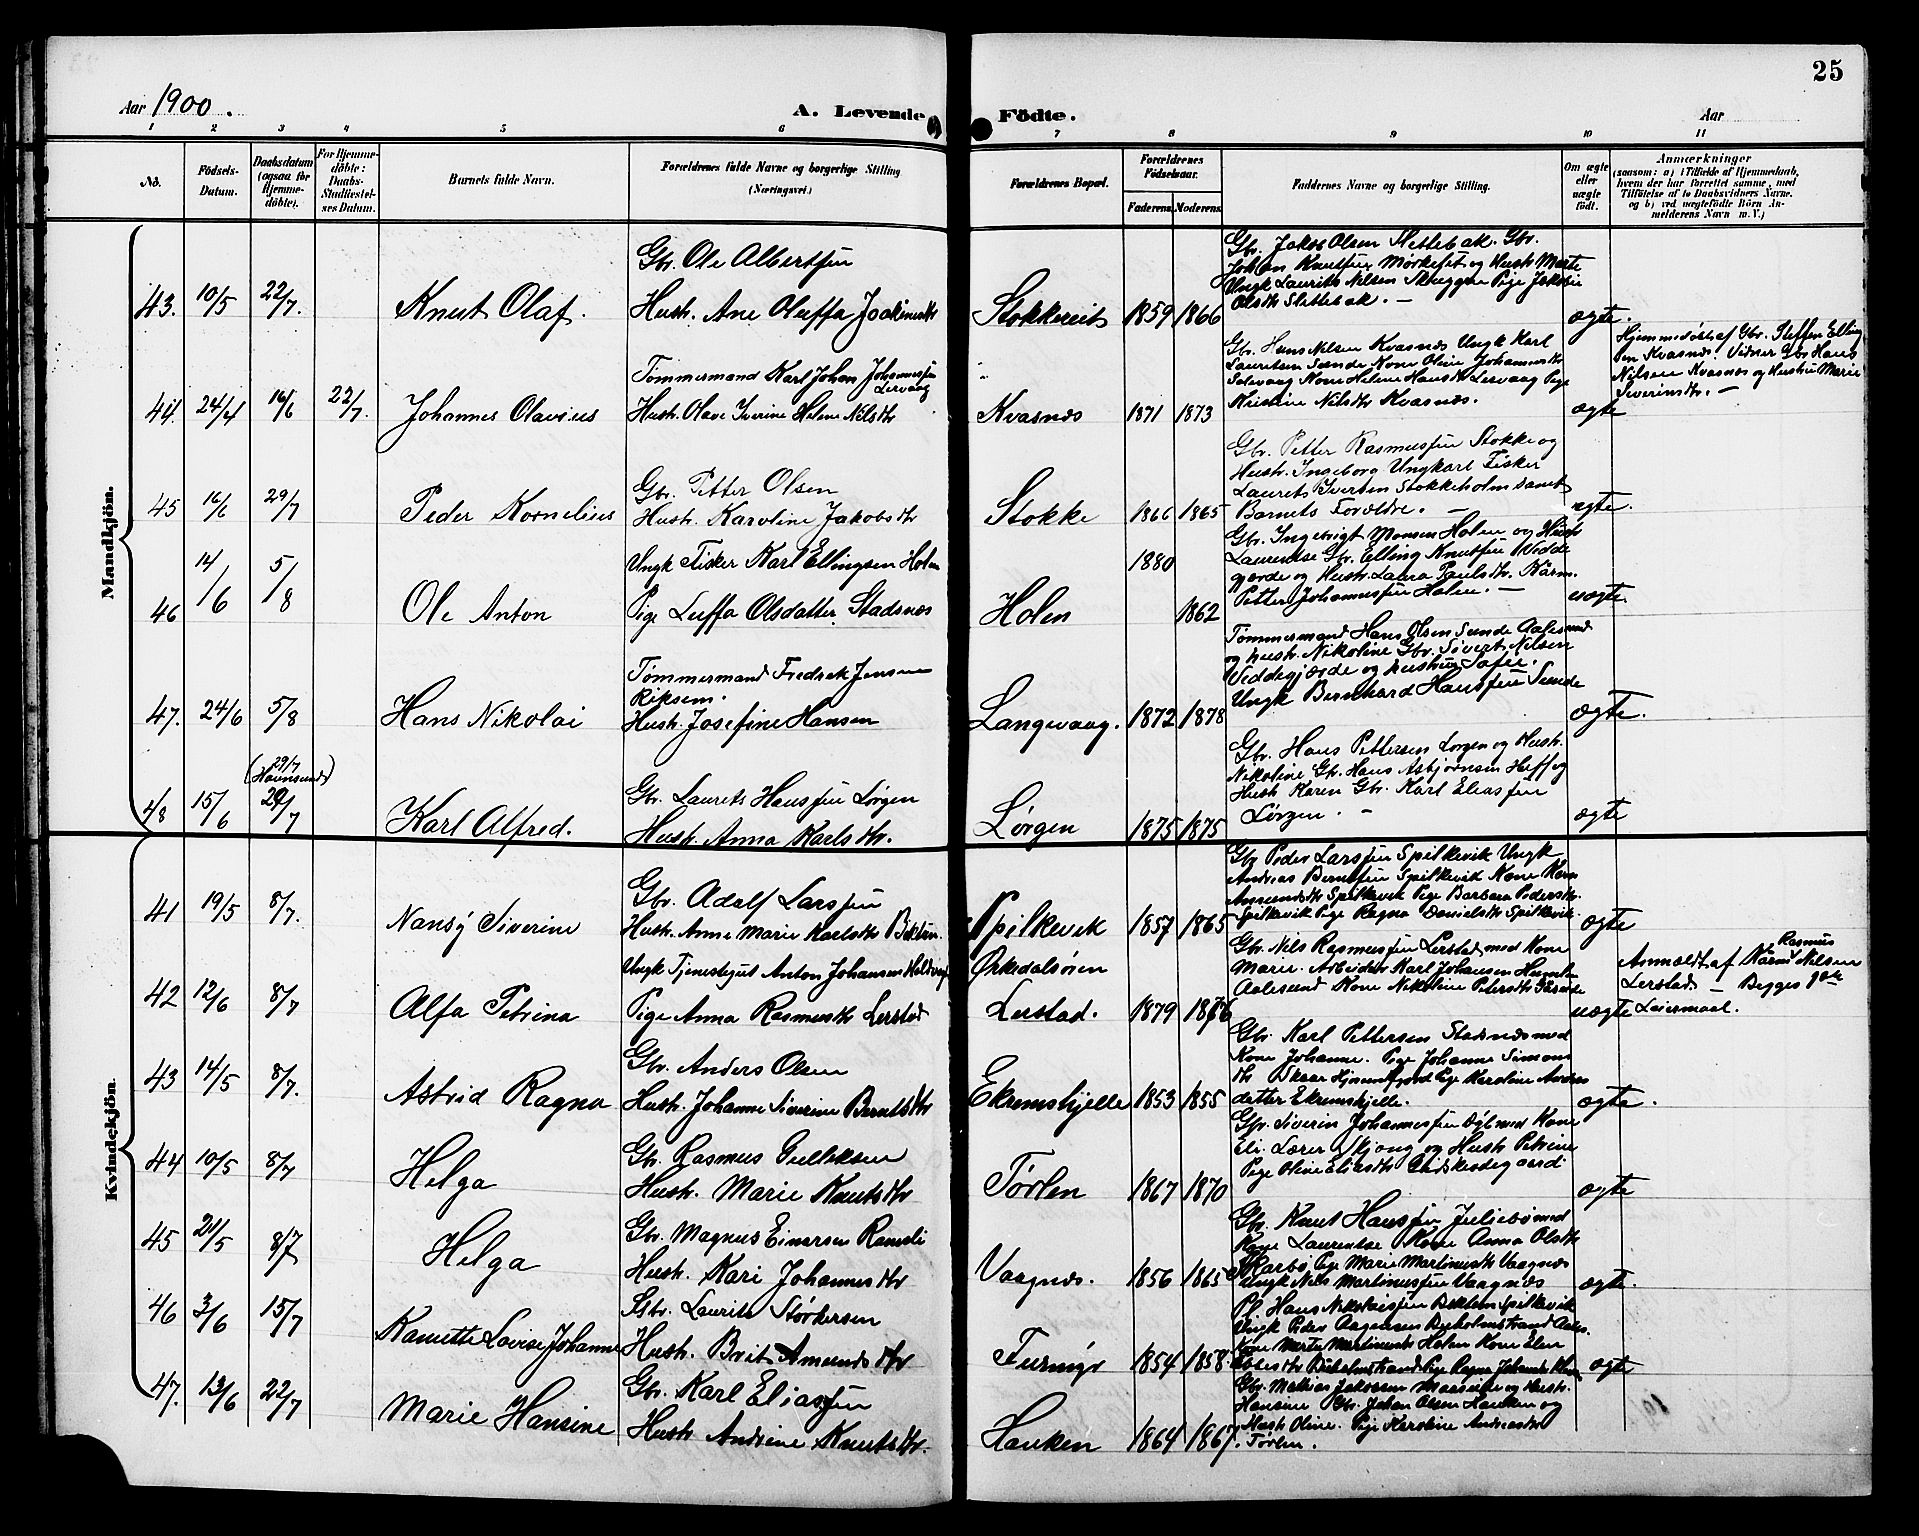 25
Aar 1900.
A. Levende
Födte.
Aar
1 2 3 4 5 6 7 8 9 10 11
No.
Födsels-
Datum.
Daabsdatum
(ogsaa for
Hjemme-
döbte).
For Hjemme-
döbte:
Daabs-
Stadfæstel-
ses Datum.
Barnets fulde Navn.
Forældrenes fulde Navne og borgerlige Stilling
(Næringsvei.)
Forældrenes Bopæl.
Forældrenes
Födselsaar.
Faderens. Moderens.
Faddernes Navne og borgerlige Stilling.
Om ægte
eller
uægte
født.
Anmærkninger
(saasom: a) i Tilfælde af Hjemmedaab,
hvem der har forrettet samme, med
Tilföielse af to Daabsvidners Navne.
og b) ved uægtefödte Börn An-
melderens Navn m. V.)
Mandkjön.
43. 10/5 22/7. Knut Olaf.
Gbr. Ole Albertsen
Hustr. Ane Oluffa Joakimsdtr
Stokkereit 1859 1866
Gbr. Jakob Olsen Slettebak. Gbr.
Johan Knutsen Mørkeset og Hustr Marte
Ungk Laurits Nilsen Pige Jakobie
Olsdtr Slettebak. —
ægte.
44. 24/4 16/6 22/7. Johannes Olavius
Tømmermand Karl Johan Johannessen
Lervaag
Hustr. Olave Iverine Helene Nilsdtr
Kvasnes 1871 1873
Gbr. Hans Nilsen Kvasnes Ungk Karl
Lauritsen Sunde Kone Oline Johannesdtr
Solevaag Kone Helene Hansdtr Lervaag Pige
Kristine Nilsdtr Kvasnes.
ægte
Hjemmedøbt af Gbr. Steffen Elling
sen Kvasnes. Vidner Gbr Hans
Nilsen Kvasnes og Hustru Marie
Severinsdtr. —
45 16/6 29/7 Peder Kornelius
Gbr. Petter Olsen
Hustr. Karoline Jakobsdtr
Stokke 1866 1865
Gbr. Petter Rasmussen Stokke og
Hustr. Ingeborg Ungkarl Fisker
Laurets Ivertsen Stokkeholm samt
Barnets Forældre. —
ægte.
46 14/6 5/8 Ole Anton
Ungk Fisker Karl Ellingsen Holen
Pige Luffa Olsdatter Stadsnes
Holen 1880 1862
Gbr. Ingebrigt Monsen Holen og Hustr
Laurentse Gbr. Elling Knutsen Vedde
gjerde og Hustr. Laura Paulsdtr. Kårm.
Petter Johannessen Holen. —
uægte.
47. 24/6 5/8 Hans Nikolai
Tømmermand Fredrek Jensen
Riksem.
Hustr. Josefine Hansen
Langevaag. 1872 1878
Tømmermand Hans Olsen Sunde Aalesund
og hustr. Nikoline Gbr. Sivert Nilsen
Veddegjærde og hustru Sofie.
Ungk Bernhard Hanssen Sunde
ægte.
48 15/6 (29/7
Havnsund)
29/7 Karl Alfred.
Gbr. Laurets Hanssen Lørgen
Hustr. Anna Karlsdtr.
Lørgen 1875 1875
Gbr. Hans Pettersen Lørgen og Hustr.
Nikoline Gbr. Hans Asbjørnsen Hoff og
Hustr Karen Gbr. Karl Eliassen
Lørgen. —
ægte
Kvindekjön.
41 19/5 8/7. Nansy Siverine
Gbr. Adolf Larssen
Hustr. Anne Marie Karlsdtr
Spilkevik 1857 1865
Gbr Peder Larssen Spilkevik Ungk
Andreas Berntsen Spilkevik Kone Karn
Amundsdtr Spilkevik Pige Barbara Pedersdtr
Spilkevik Pige Ragna Danielsdtr Spilkevik.
ægte
42 12/6 8/7 Alfa Petrina
Ungk Tjenestegut Anton Johansen
Pige Anna Rasmusdtr Lerstad
Ørkedalsøren
Lerstad. 1879 1876
Gbr. Nils Rasmussen Lerstad med Kone
Marie. Arbeider Karl Johansen
Aalesund Kone Nikoline Petersdtr
uægte
Anmeldt af Kårm Rasmus Nilsen
Lerstad — Begges 1ste
Leiermaal.
43 14/5 8/7. Astrid Ragna
Gbr. Anders Olsen
Hustr. Johanne Siverine Berntsdtr
Ekremshjelle 1853 1855
Gbr. Karl Pettersen Stadsnes med
Kone Johanne. Pige Johanne Simons
dtr Pige Karoline Anders
datter Ekremshjelle.
ægte.
44 10/5 8/7 Helga
Gbr. Rasmus Gulliksen
Hustr. Marie Knutsdtr
Tørlen 1867 1870
Gbr. Siverin Johannessen med Kone
Eli. Lærer Skjong og Hustr Petrine
Pige Oline Eliasdtr Giskeødegaard
ægte
45 21/5 8/7 Helga
Gbr. Magnus Einersen
Hustr. Kari Johannesdtr
Vaagnes. 1856 1865
Gbr. Knut Hanssen Juliebø med
Kone Laurentse Kone Anna Olsdtr
Skarbø Pige Marie Martinusdtr Vaagnes
Ungk Nils Martinussen Vaagnes
ægte.
46 3/6 15/7 Kanutte Lovise Johanne
Gbr. Laurits Størkersen
Hustr. Brit Amundsdtr
Furmyr 1854 1858.
Pl. Hans Nikolaissen Spilkevik
Ungk Peder Aagesen
Kone Marte Martinusdtr Holen Kone Elen
ægte
47. 13/6 22/7 Marie Hansine
Gbr. Karl Eliassen
Hustr Andrine Knutsdtr.
Hauken 1864 1867.
Gbr. Mathias Jakobsen og Hustr.
Hansine Gbr. Johan Olsen Hauken og
Hustr Oline. Pige Karoline Andreasdtr
Tørlen.